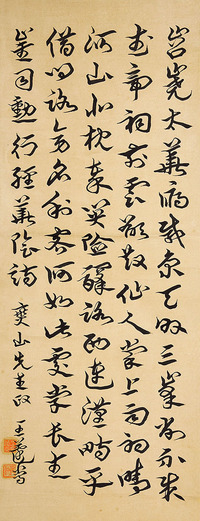 岧嶢太華俯咸京天外三峯削不成
武帝祠前雲欲散仙人掌上雨初晴
河山北枕秦關險驛路西連漢畤平
借問路旁名利客何如此處學長生
崔司勳行經華陰詩 山先生政 王蘧常